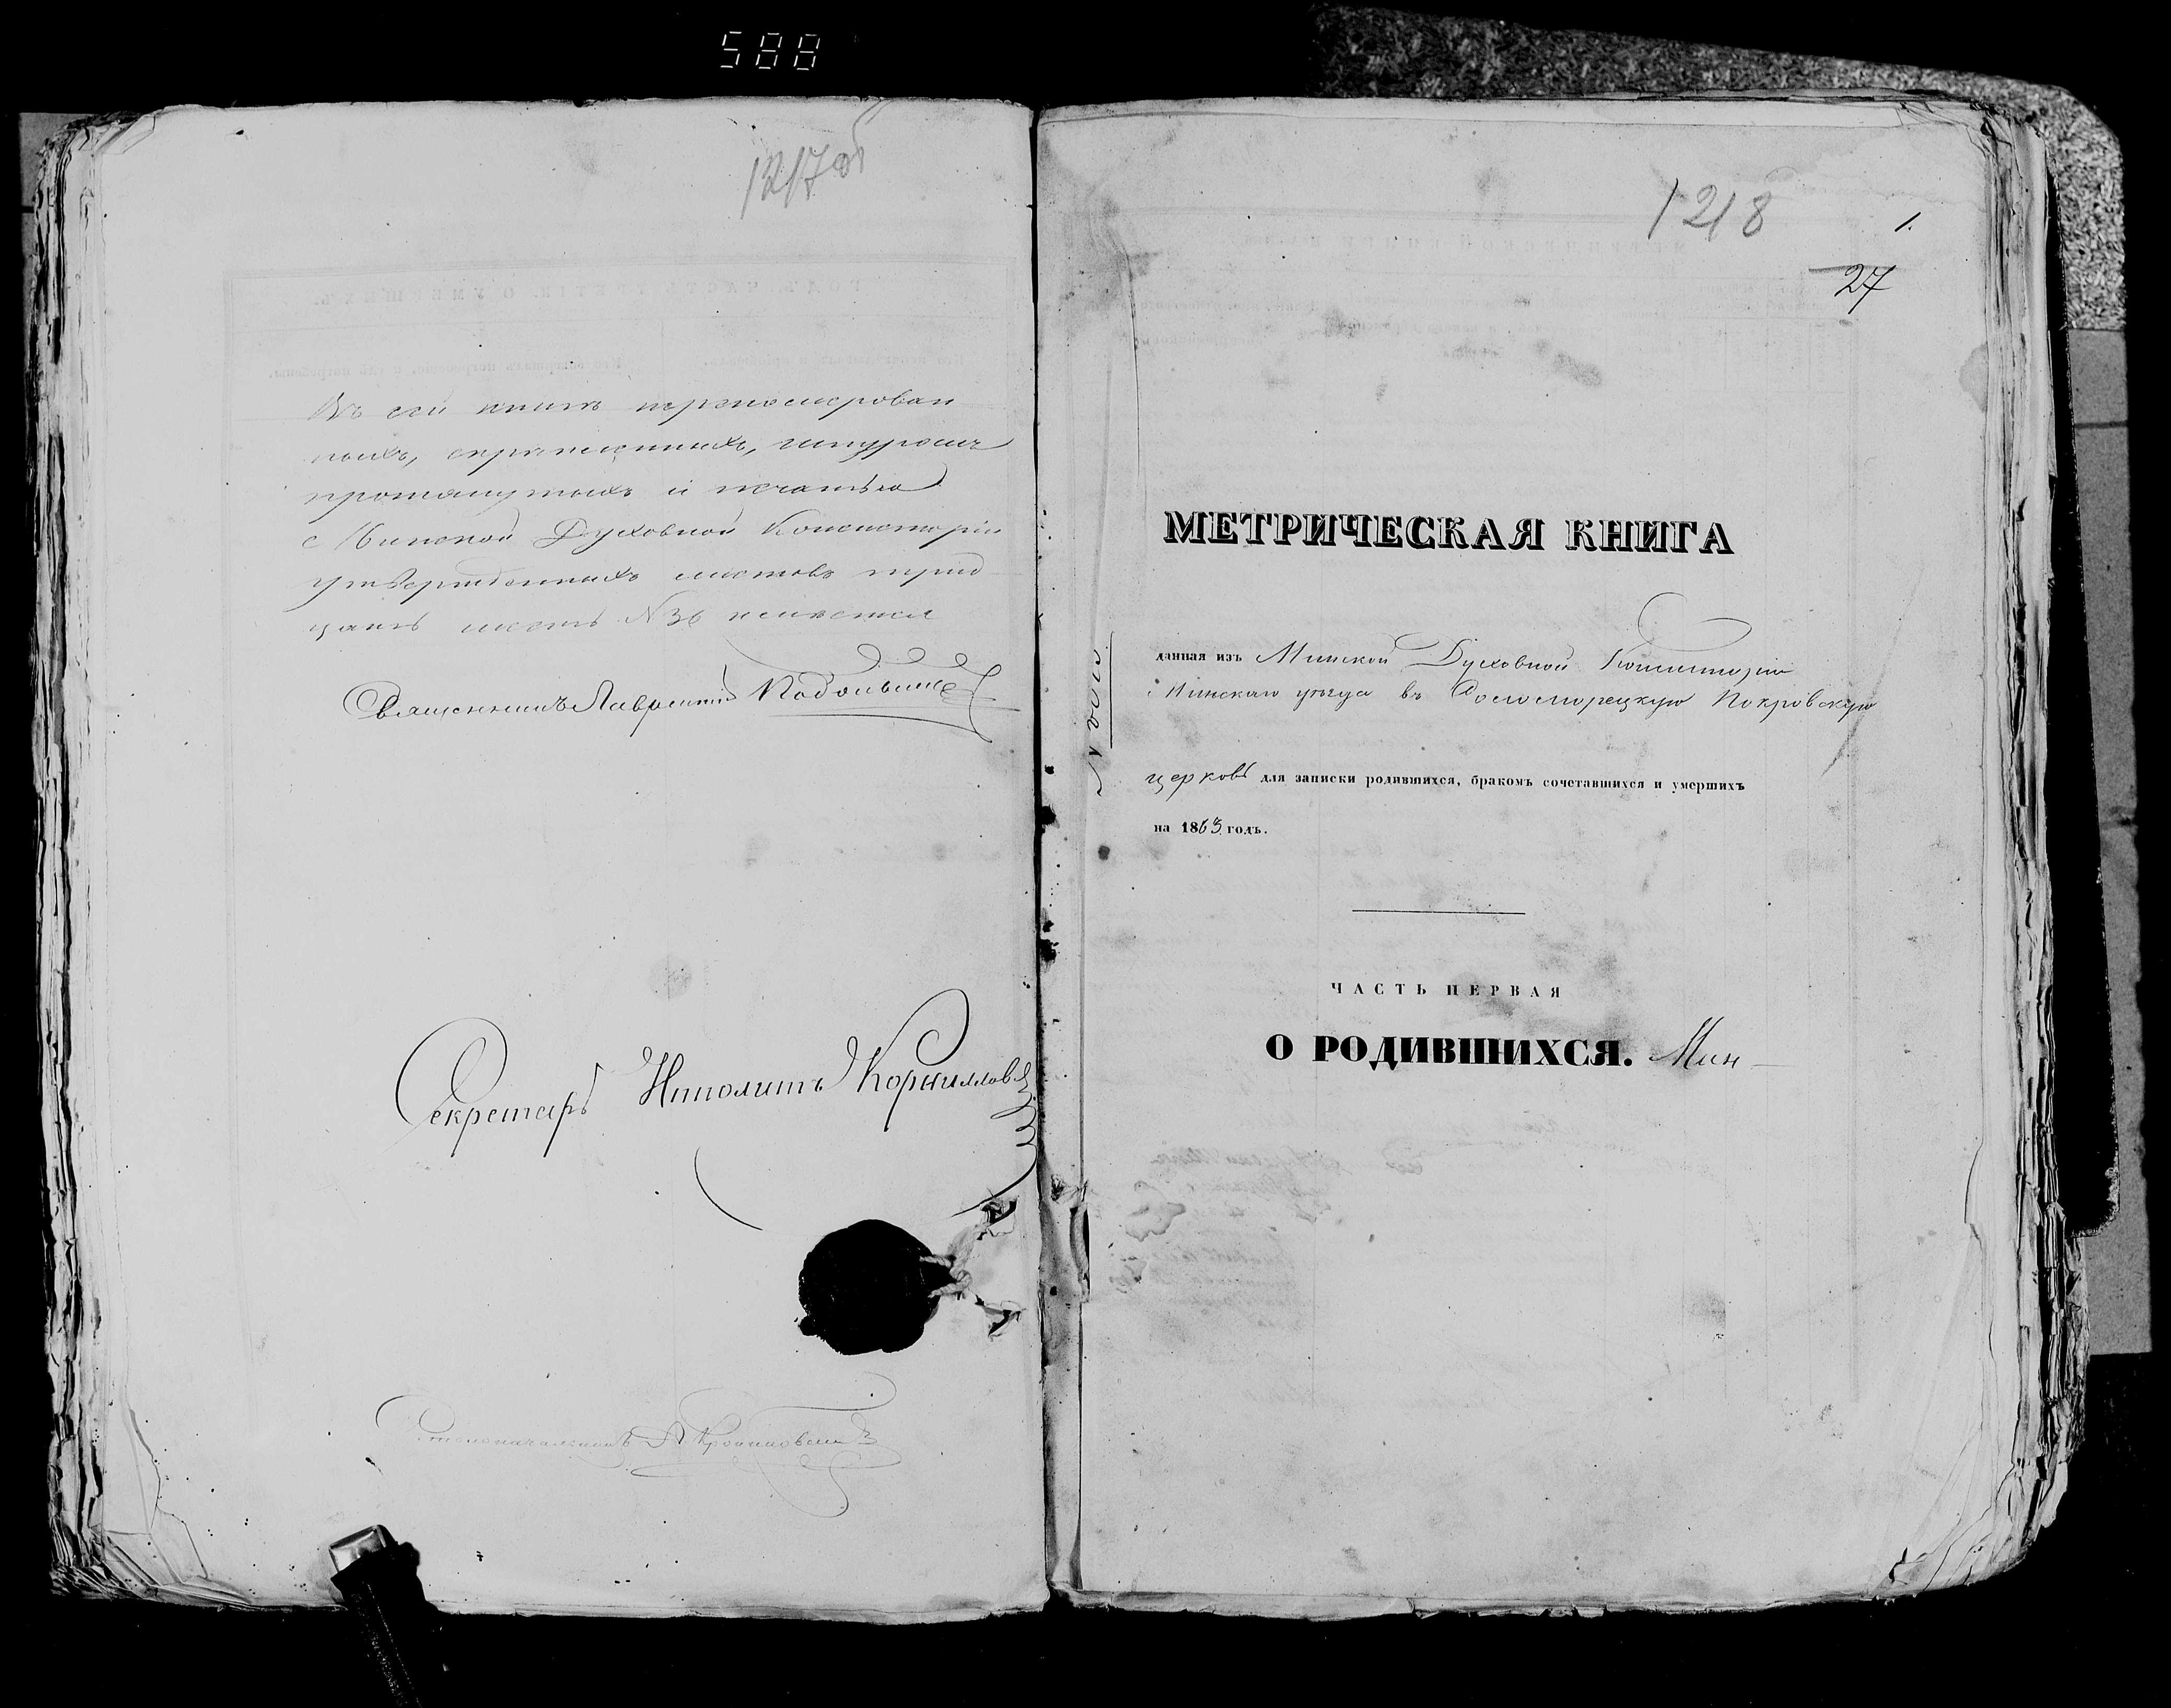 588
1217об
Въ сей книгѣ перенумерован
ныхъ, скрѣпленныхъ, шнуромъ
протянутыхъ и печатью
Минской Духовной Консисторіи
утвержденныхъ листовъ трид
цать шесть N 36 имѣется
Священникъ Лаврентій
Секретарь Иполитъ Корниловъ
Столоначальникъ
1218
1.
27
МЕТРИЧЕСКАЯ КНИГА
данная изъ Минской Духовной Консисторіи
Пинскаго уѣзда въ Покровскую
церковь для записки родившихся, бракомъ сочетавшихся и умершихъ
на 1863 годъ.
ЧАСТЬ ПЕРВАЯ
О РОДИВШИХСЯ. Мин